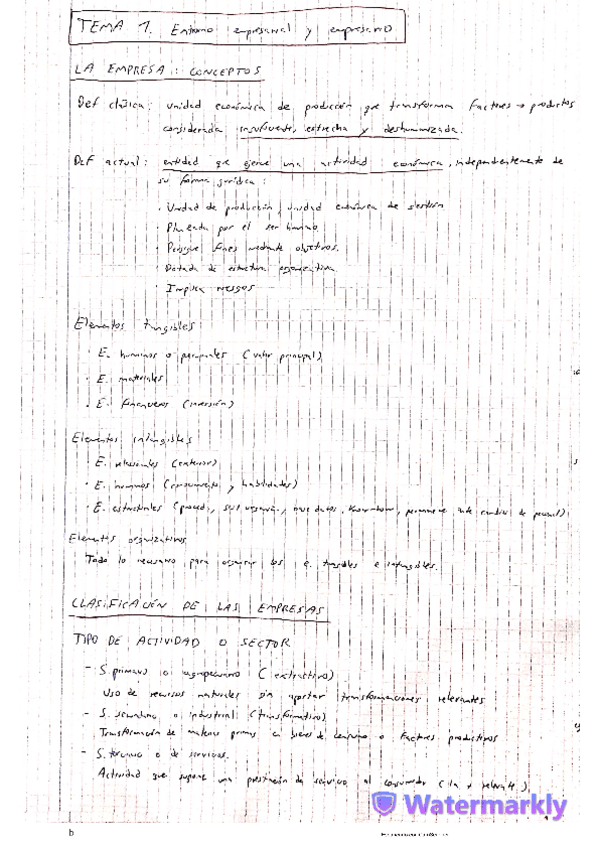 TEMA 1. Entorno empresarial y empresario
LA EMPRESA: CONCEPTOS
Def clásica: unidad económica de producción que transforma factores → productos
considerada insuficiente, estrecha y deshumanizada.
Def actual: entidad que ejerce una actividad económica, independientemente de
su forma jurídica:
· Unidad de producción, unidad económica de gestión
· Planeada por el ser humano.
· Persigue fines mediante objetivos.
· Dotada de estructura organizativa
· Implica riesgos
Elementos tangibles
· E. humanos o personales (valor principal)
· E. materiales
· E. financieros (inversión)
Elementos intangibles
E. relacionales (exterior)
· E. humanos (conocimiento y habilidades)
· E. estructurales (proced., organiz., base datos, know-how, permanece ante cambios de personal)
Elementos organizativos
Todo lo necesario para organizar los e. tangibles e intangibles.
CLASIFICACIÓN DE LAS EMPRESAS
TIPO DE ACTIVIDAD O SECTOR
- S. primario o agropecuario (extractivo)
Uso de recursos naturales sin aportar transformaciones relevantes
- S. secundario o industrial (transformativo)
Transformación de materias primas en bienes de consumo o factores productivos
- S. terciario o de servicios.
Actividad que supone una prestación de servicio al consumidor (la + relevante).
Watermarkly
b